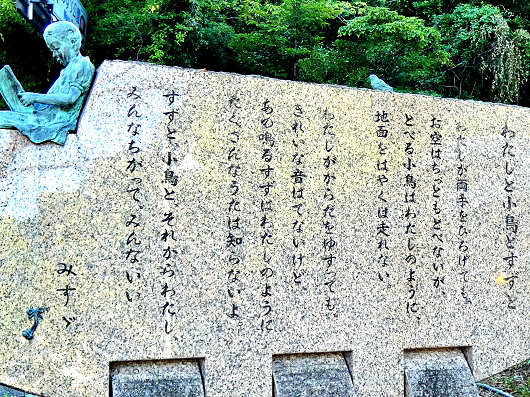 わたしと小鳥とすずと
わたしが両手をひろげても、
お空はちっともとべないが、
とべる小鳥はわたしのように、
地面をはやくは走れない
わたしがからだをゆすっても、
きれいな音はでないけど、
あの鳴るすずはわたしのように
たくさんなうたは知らないよ
すずと、小鳥と、それからわたし、
みんなちがって、みんないい
みすゞ